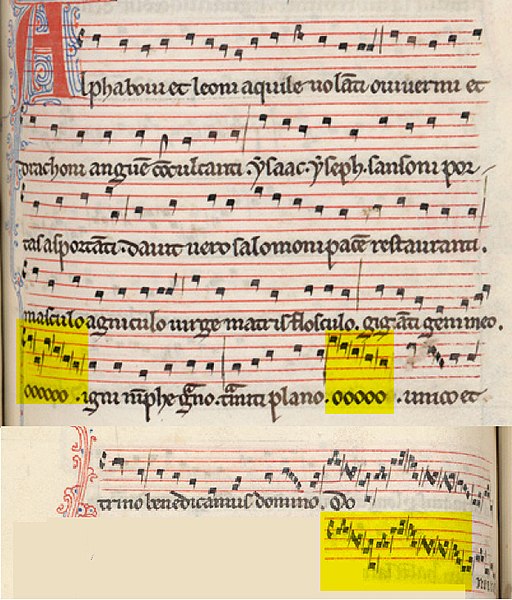 Alpha boui et leoni aquile uolāti oui uermi et
drachoni anguē cōculcanti. ysaac. yseph. sansoni por
tas asportāti. dauit uero salomoni pacē restauranti.
masculo agniculo uirge matris flosculo. gigāti gemineo.
oooooo. igni nīphe g̃no. t̃miti plano. ooooo. unico et
trino benedicamus domino. Do